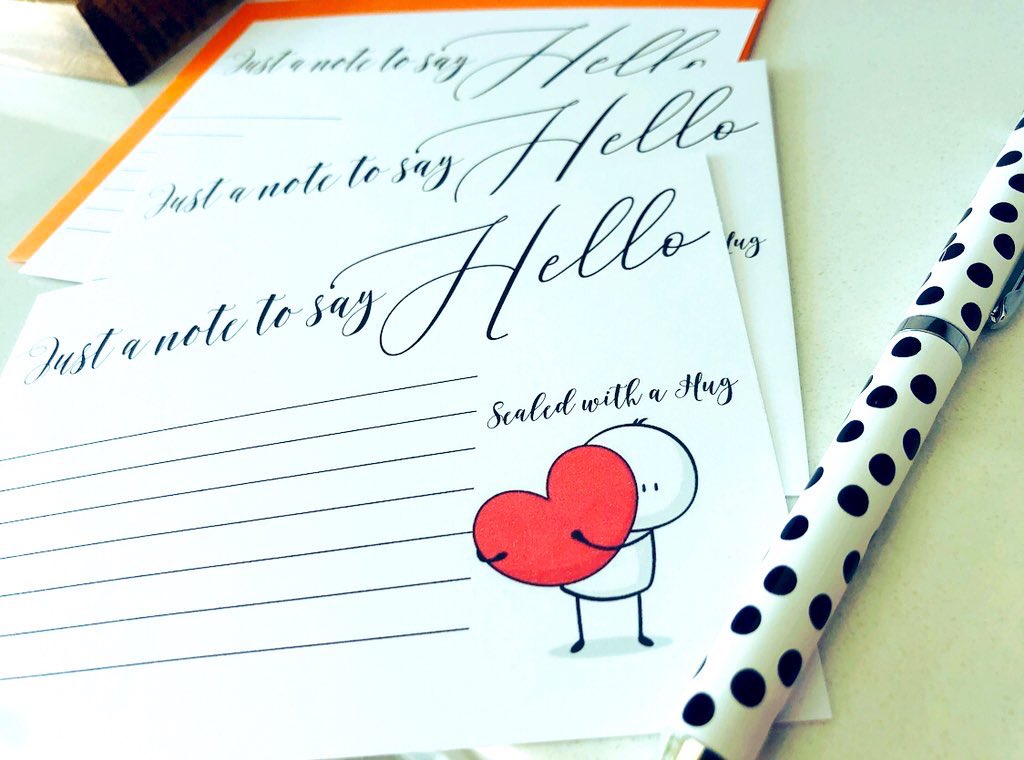 Just a note to say Hello
Just a note to say Hello
Hug
Just a note to say Hello
Sealed with a Hug